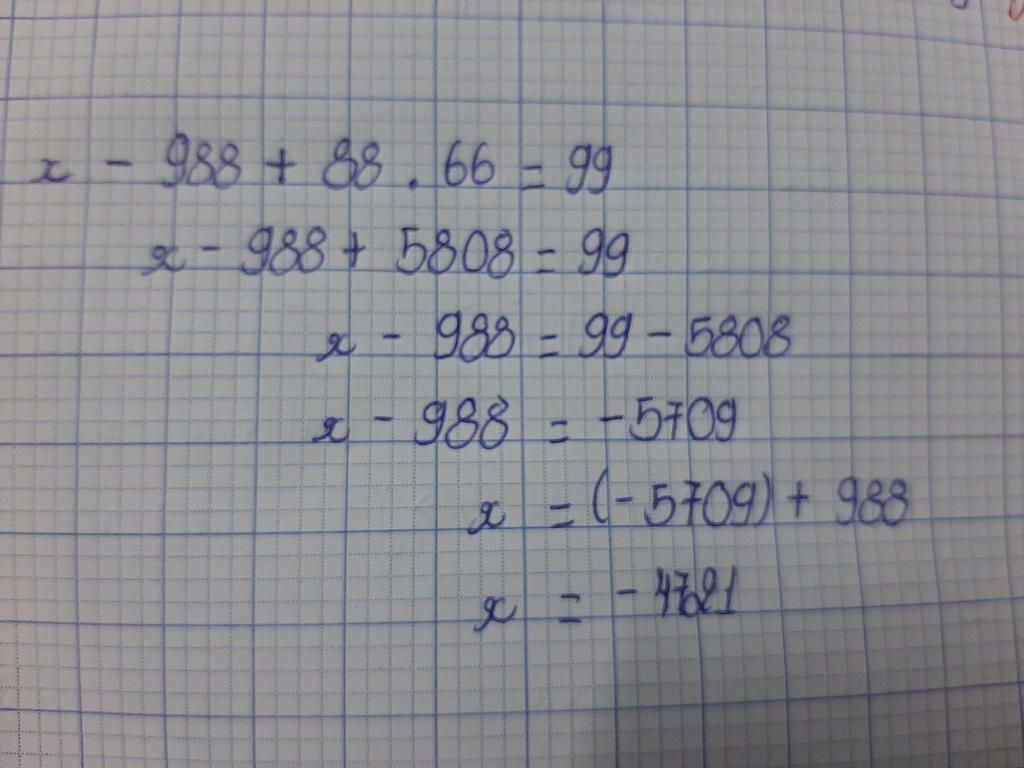 x - 988 + 88 . 66 = 99
x - 988 + 5808 = 99
x - 988 = 99 - 5808
x - 988 = -5709
x = (-5709) + 988
x = -4721